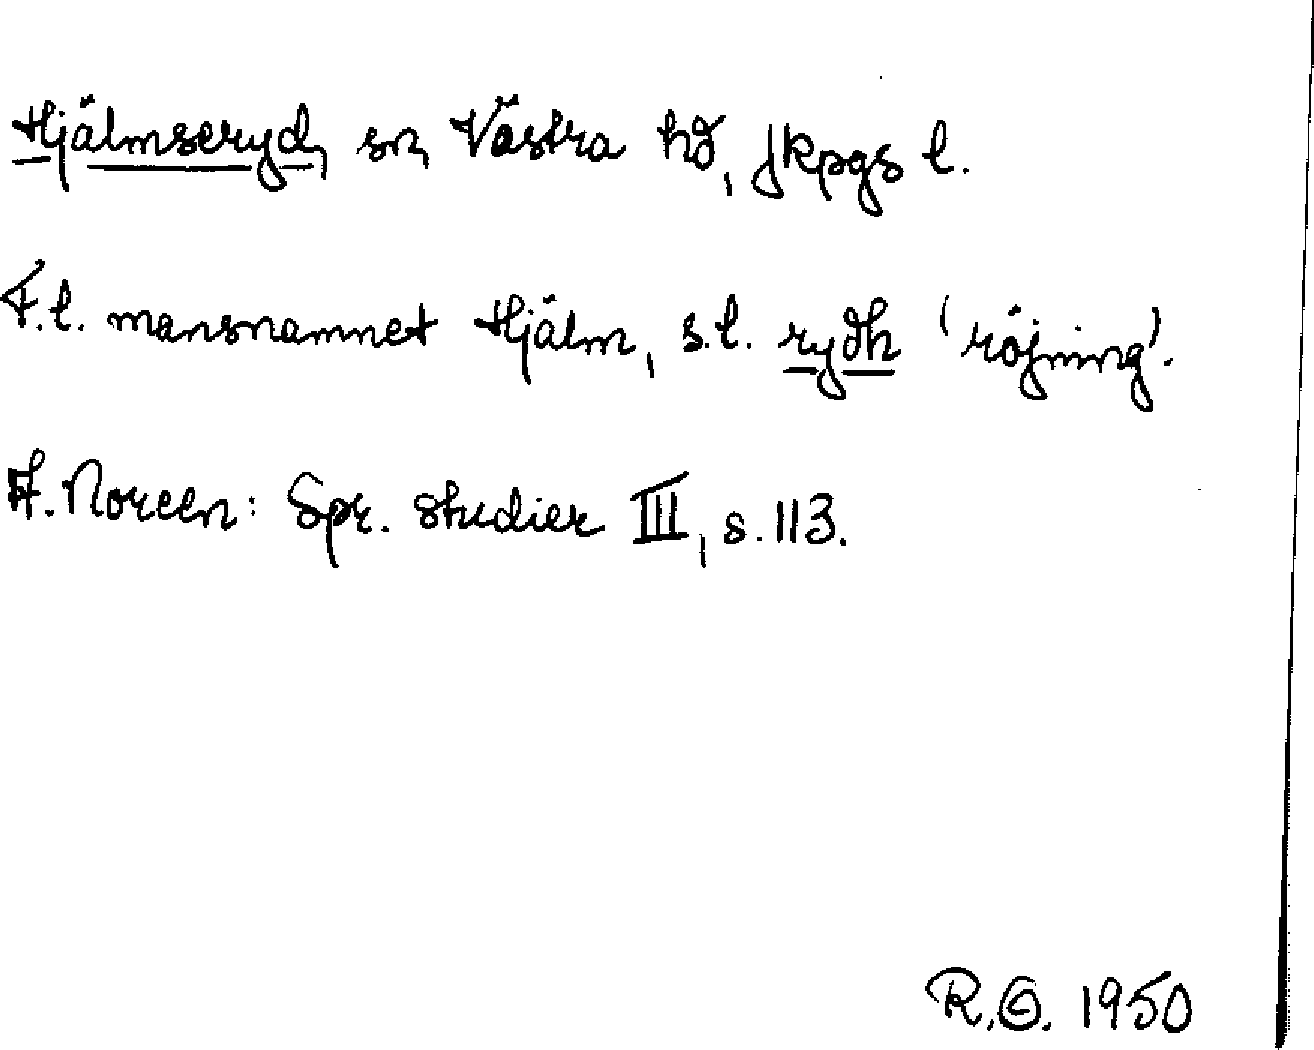 Hjälmseryd, sn, Västra hd, Jkpgs l.
F.l. mansnamnet Hjälm, s.l. rydh 'röjning'.
A. Noreen: Spr. studier III, s. 113.
R.G. 1950